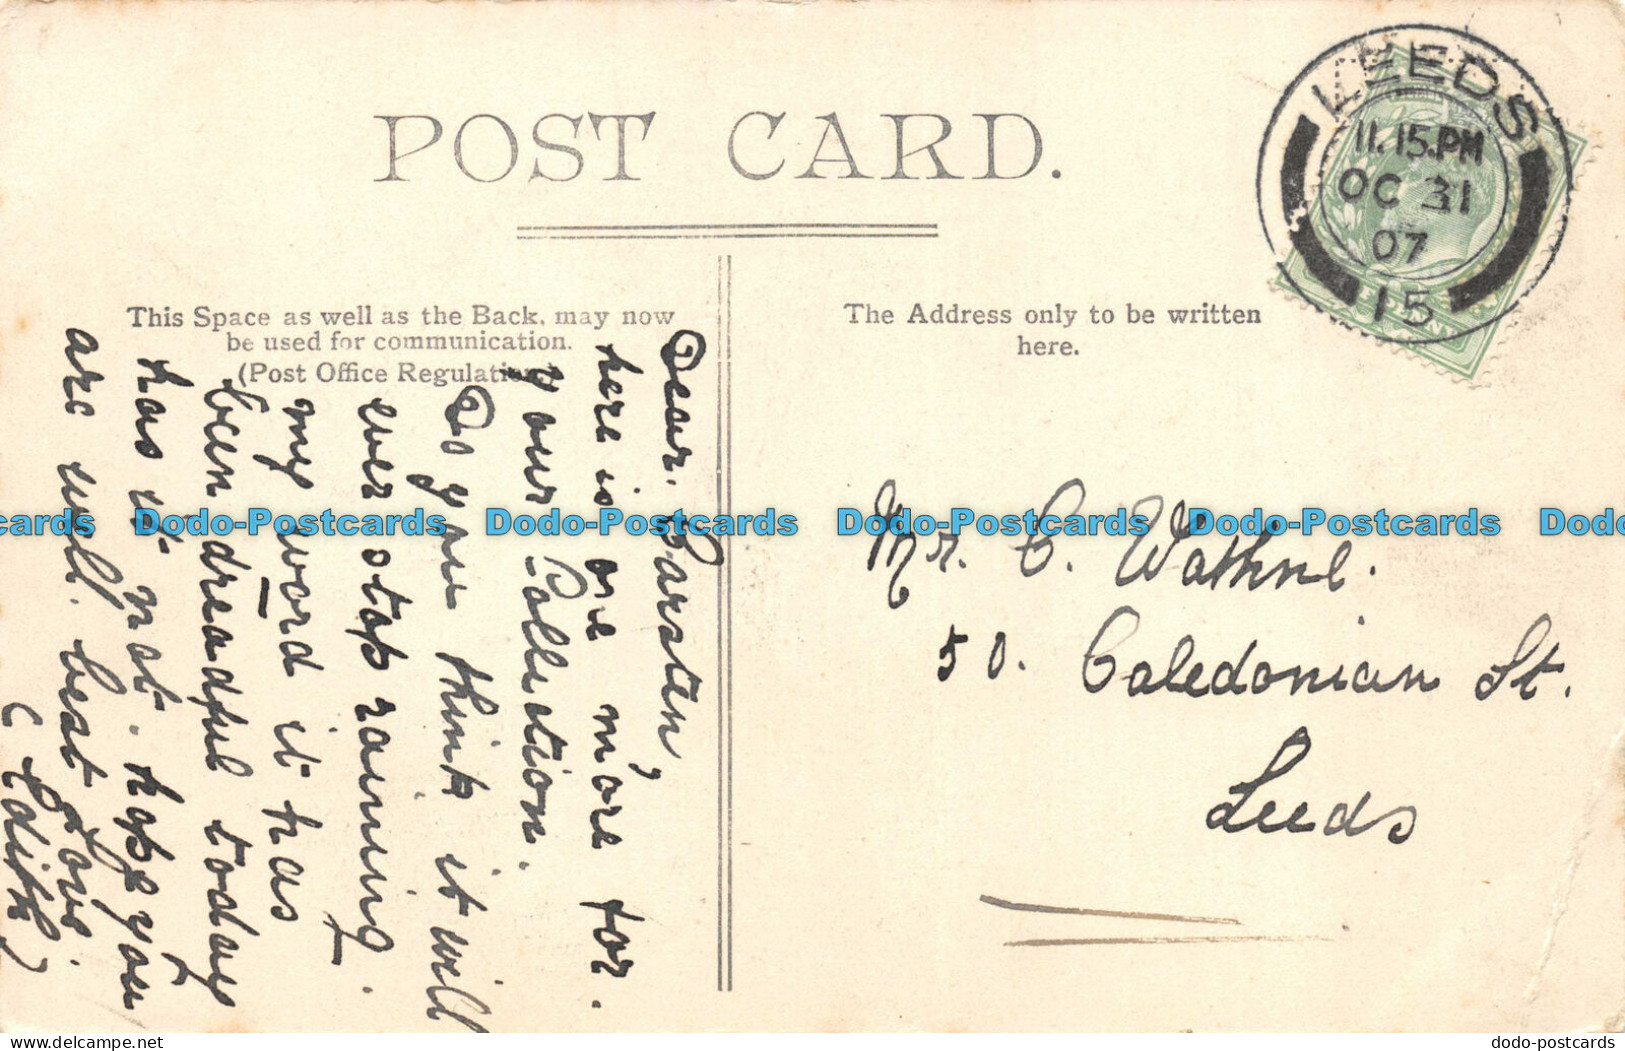 POST CARD.
This Space as well as the Back, may now
be used for communication.
(Post Office Regulation.)
The Address only to be written
here.
LEEDS
11.15.PM
OC 31
07
15
Dear Carsten,
here is one more for
your Collection.
Do you think it will
ever stop raining.
my word it has
been dreadful today
has it not. hope you
are well. best Love.
(Edith)
Mr. C. Wathne.
50. Caledonian St.
Leeds
Dodo-Postcards Dodo-Postcards Dodo-Postcards Dodo-Postcards
Delcampe.net
dodo-postcards